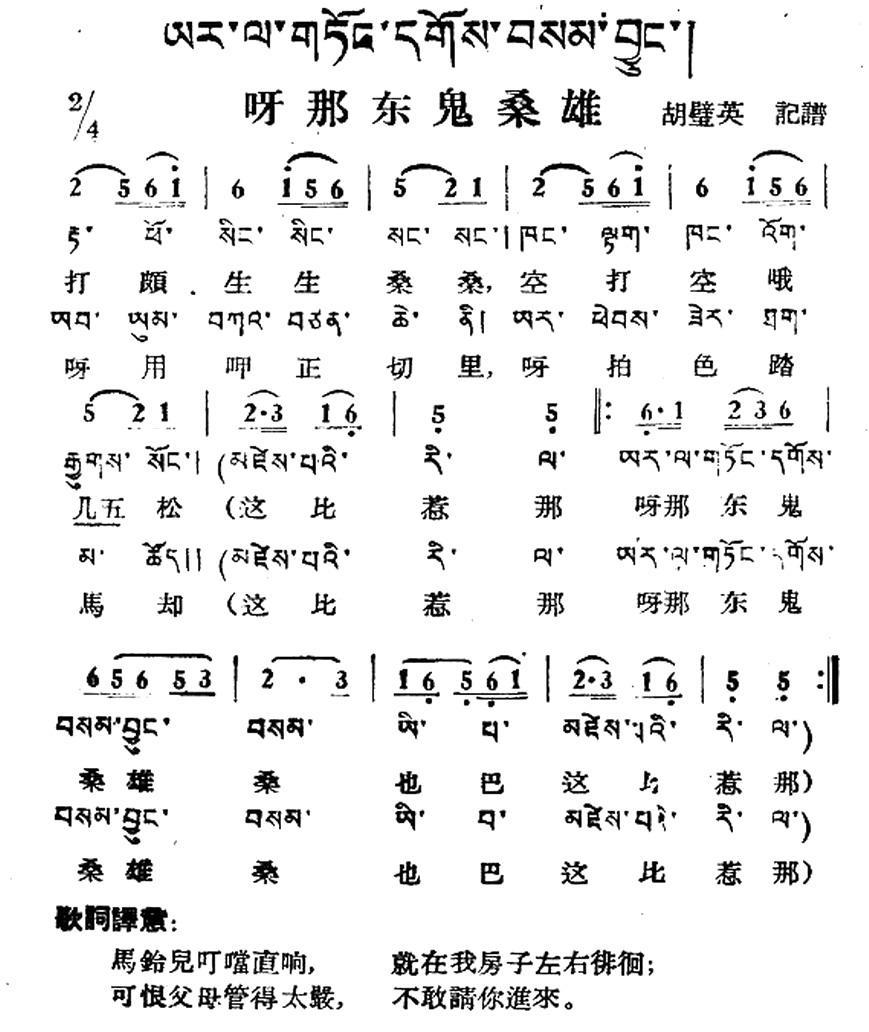 ཨར་ལ་གཏོང་དགོས་བསམ་བྱུང་།
2/4 呀那东鬼桑雄 胡璧英 記譜
2 5 6 1 | 6 1 5 6 | 5 2 1 | 2 5 6 1 | 6 1 5 6 |
རྟ་ ཕོ་ སིང་ སིང་ སང་ སང་། ཁང་ ལྟག་ ཁང་ འོག་
打 頗 生 生 桑 桑, 空 打 空 哦
ཨབ་ ཡུམ་ བཀའ་ བཙན་ ཆེ་ ནི། ཨར་ ཕེབས་ ཟེར་ ཐག་
呀 用 呷 正 切 里, 呀 拍 色 踏
5 2 1 | 2·3 1 6 | 5 5 ‖: 6·1 2 3 6 |
རྒྱུགས་ སོང་། (མཛེས་པའི་ རི་ ལ་ ཨར་ལ་གཏོང་དགོས་
几五 松 (这 比 惹 那 呀那 东 鬼
མ་ ཆོད།། (མཛེས་པའི་ རི་ ལ་ ཨར་ལ་གཏོང་དགོས་
馬 却 (这 比 惹 那 呀那 东 鬼
6 5 6 5 3 | 2 · 3 | 1 6 5 6 1 | 2·3 1 6 | 5 5 :‖
བསམ་བྱུང་ བསམ་ ཨི་ པ་ མཛེས་པའི་ རི་ ལ་)
桑 雄 桑 也 巴 这 比 惹 那)
བསམ་བྱུང་ བསམ་ ཨི་ པ་ མཛེས་པའི་ རི་ ལ་)
桑 雄 桑 也 巴 这 比 惹 那)
歌詞譯意:
馬鈴兒叮噹直响, 就在我房子左右徘徊;
可恨父母管得太嚴, 不敢請你進來。